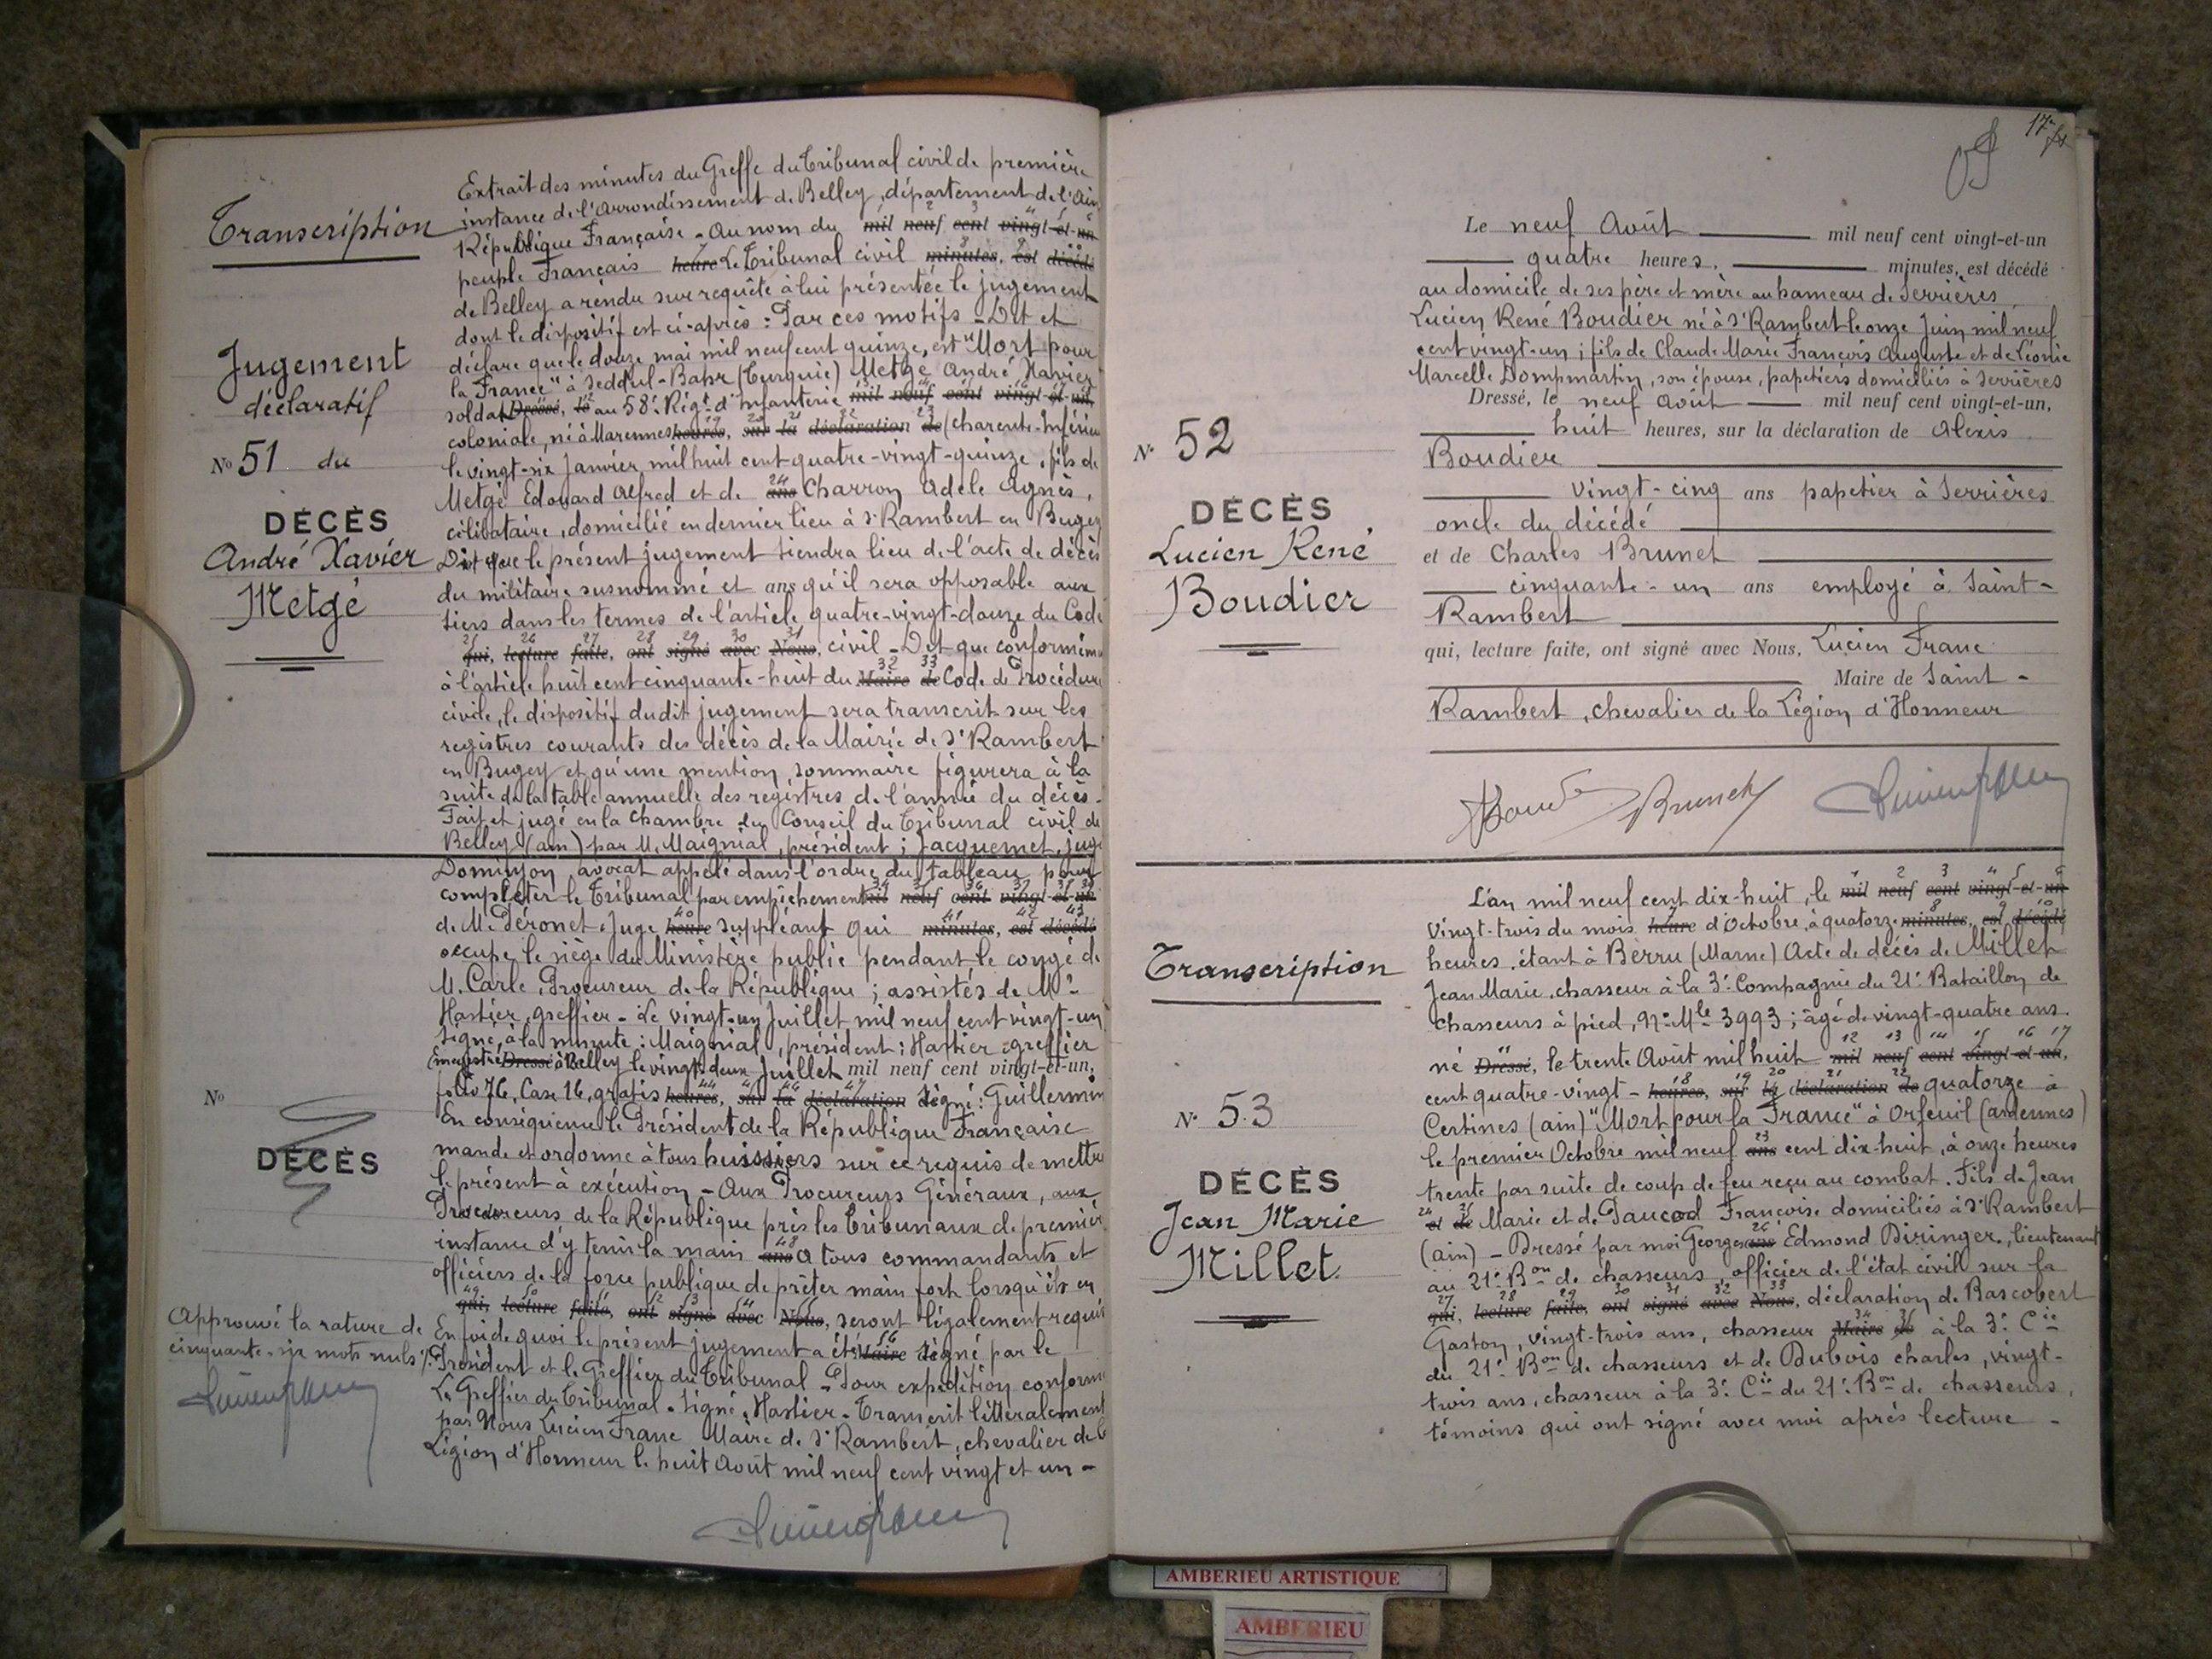 Transcription
Jugement
déclaratif
No 51 du
DÉCÈS
André Xavier
Metgé
Extrait des minutes du Greffe du Tribunal civil de première
instance de l'Arrondissement de Belley, département de l'Ain
République Française - Au nom du mil neuf cent vingt-et-un
peuple Français heure Le Tribunal civil minutes, est décédé
de Belley a rendu sur requête à lui présentée le jugement
dont le dispositif est ci-après : Par ces motifs - Dit et
déclare que le douze mai mil neuf cent quinze, est "Mort pour
la France" à Seddul-Bahr (Turquie) Metgé André Xavier
soldat Dressé, le au 58e Régt d'Infanterie mil neuf cent vingt-et-un,
coloniale, né à Marennes heures, sur la déclaration de (Charente-Inférieu
le vingt-six Janvier mil huit cent quatre-vingt-quinze, fils de
Metgé Edouard Alfred et de ans Charron Adèle Agnès,
célibataire, domicilié en dernier lieu à St Rambert en Bugey
Dit que le présent jugement tiendra lieu de l'acte de décès
du militaire susnommé et ans qu'il sera opposable aux
tiers dans les termes de l'article quatre-vingt-douze du Code
qui, lecture faite, ont signé avec Nous, civil - Dit que conforméme
à l'article huit cent cinquante-huit du Maire de Code de Procédure
civile, le dispositif dudit jugement sera transcrit sur les
registres courants des décès de la Mairie de St Rambert
en Bugey et qu'une mention sommaire figurera à la
suite de la table annuelle des registres de l'année du décès -
Fait et jugé en la Chambre du Conseil du Tribunal civil de
Belley (Ain) par M. Maignial, président ; Jacquemet, juge
Dominjon, avocat appelé dans l'ordre du tableau pour
compléter le Tribunal par empêchement mil neuf cent vingt-et-un
de M. Péronet, Juge heure suppléant qui minutes, est décédé
occupe le siège du Ministère public pendant le congé de
M. Carle, Procureur de la République ; assistés de Me
Hastier, greffier - Le vingt-un Juillet mil neuf cent vingt-un
Signé, à la minute : Maignial, président ; Hastier greffier
Enregistré Dressé à Belley le vingt-deux Juillet mil neuf cent vingt-et-un,
folio 76, Case 16, gratis heures, sur la déclaration Signé : Guillermin
En conséquence le Président de la République Française
mande et ordonne à tous huissiers sur ce requis de mettre
le présent à exécution - Aux Procureurs Généraux, aux
Procureurs de la République près les Tribunaux de première
instance d'y tenir la main ans à tous commandants et
officiers de la force publique de prêter main forte lorsqu'ils en
qui, lecture faite, ont signé avec Nous, seront légalement requis
En foi de quoi le présent jugement a été Maire signé par le
Président et le Greffier du Tribunal - Pour expédition conforme
Le Greffier du Tribunal - Signé : Hastier - Transcrit littéralement
par Nous Lucien Franc Maire de St Rambert, chevalier de la
Légion d'Honneur le huit Août mil neuf cent vingt et un -
No
DÉCÈS
Approuvé la rature de
cinquante-six mots nuls
17
No 52
DÉCÈS
Lucien René
Boudier
Le neuf Août mil neuf cent vingt-et-un
quatre heures, minutes, est décédé
au domicile de ses père et mère au hameau de Serrières
Lucien René Boudier né à St Rambert le onze Juin mil neuf
cent vingt-un ; fils de Claude Marie François Auguste et de Léonie
Marcelle Dompmartin, son épouse, papetiers domiciliés à Serrières
Dressé, le neuf Août mil neuf cent vingt-et-un,
huit heures, sur la déclaration de Alexis
Boudier
vingt-cinq ans papetier à Serrières
oncle du décédé
et de Charles Brunet
cinquante-un ans employé à Saint-
Rambert
qui, lecture faite, ont signé avec Nous, Lucien Franc
Maire de Saint-
Rambert, chevalier de la Légion d'Honneur
Brunet
Transcription
No 53
DÉCÈS
Jean Marie
Millet
L'an mil neuf cent dix-huit, le mil neuf cent vingt-et-un
vingt-trois du mois heure d'Octobre, à quatorze minutes, est décédé
heures, étant à Berru (Marne) Acte de décès de Millet
Jean Marie, chasseur à la 3e Compagnie du 21e Bataillon de
chasseurs à pied, No Mle 3993 ; âgé de vingt-quatre ans.
né Dressé, le trente Août mil huit mil neuf cent vingt-et-un,
cent quatre-vingt- heures, sur la déclaration de quatorze à
Certines (Ain) "Mort pour la France" à Orfeuil (Ardennes)
le premier Octobre mil neuf ans cent dix-huit, à onze heures
trente par suite de coup de feu reçu au combat. Fils de Jean
et de Marie et de Paucod Françoise domiciliés à St Rambert
(Ain) - Dressé par moi Georges ans Edmond Diringer, lieutenant
au 21e Bon de chasseurs, officier de l'état civil sur la
qui, lecture faite, ont signé avec Nous, déclaration de Bascobert
Gaston, vingt-trois ans, chasseur Maire de à la 3e Cie
du 21e Bon de chasseurs et de Dubois Charles, vingt-
trois ans, chasseur à la 3e Cie du 21e Bon de chasseurs,
témoins qui ont signé avec moi après lecture -
AMBERIEU ARTISTIQUE
AMBERIEU